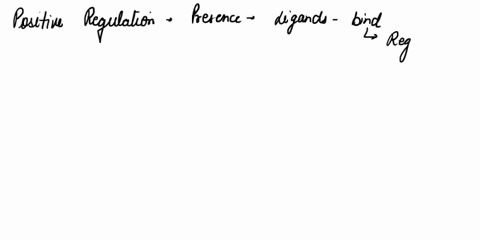 Positive Regulation - Presence - Ligands - bind
↳ Reg